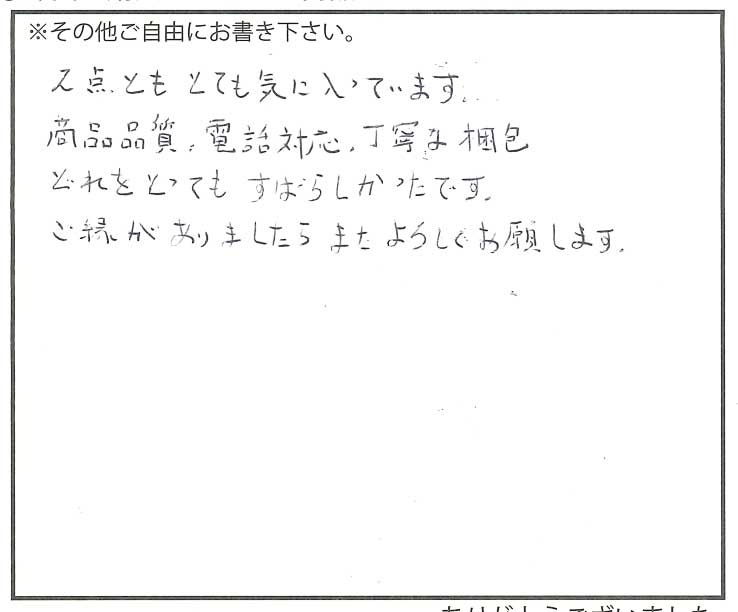 ※その他ご自由にお書き下さい。
2点とも とても気に入っています。
商品品質、電話対応、丁寧な梱包
どれをとっても すばらしかったです。
ご縁が ありましたら また よろしくお願します。
ありがとうございました